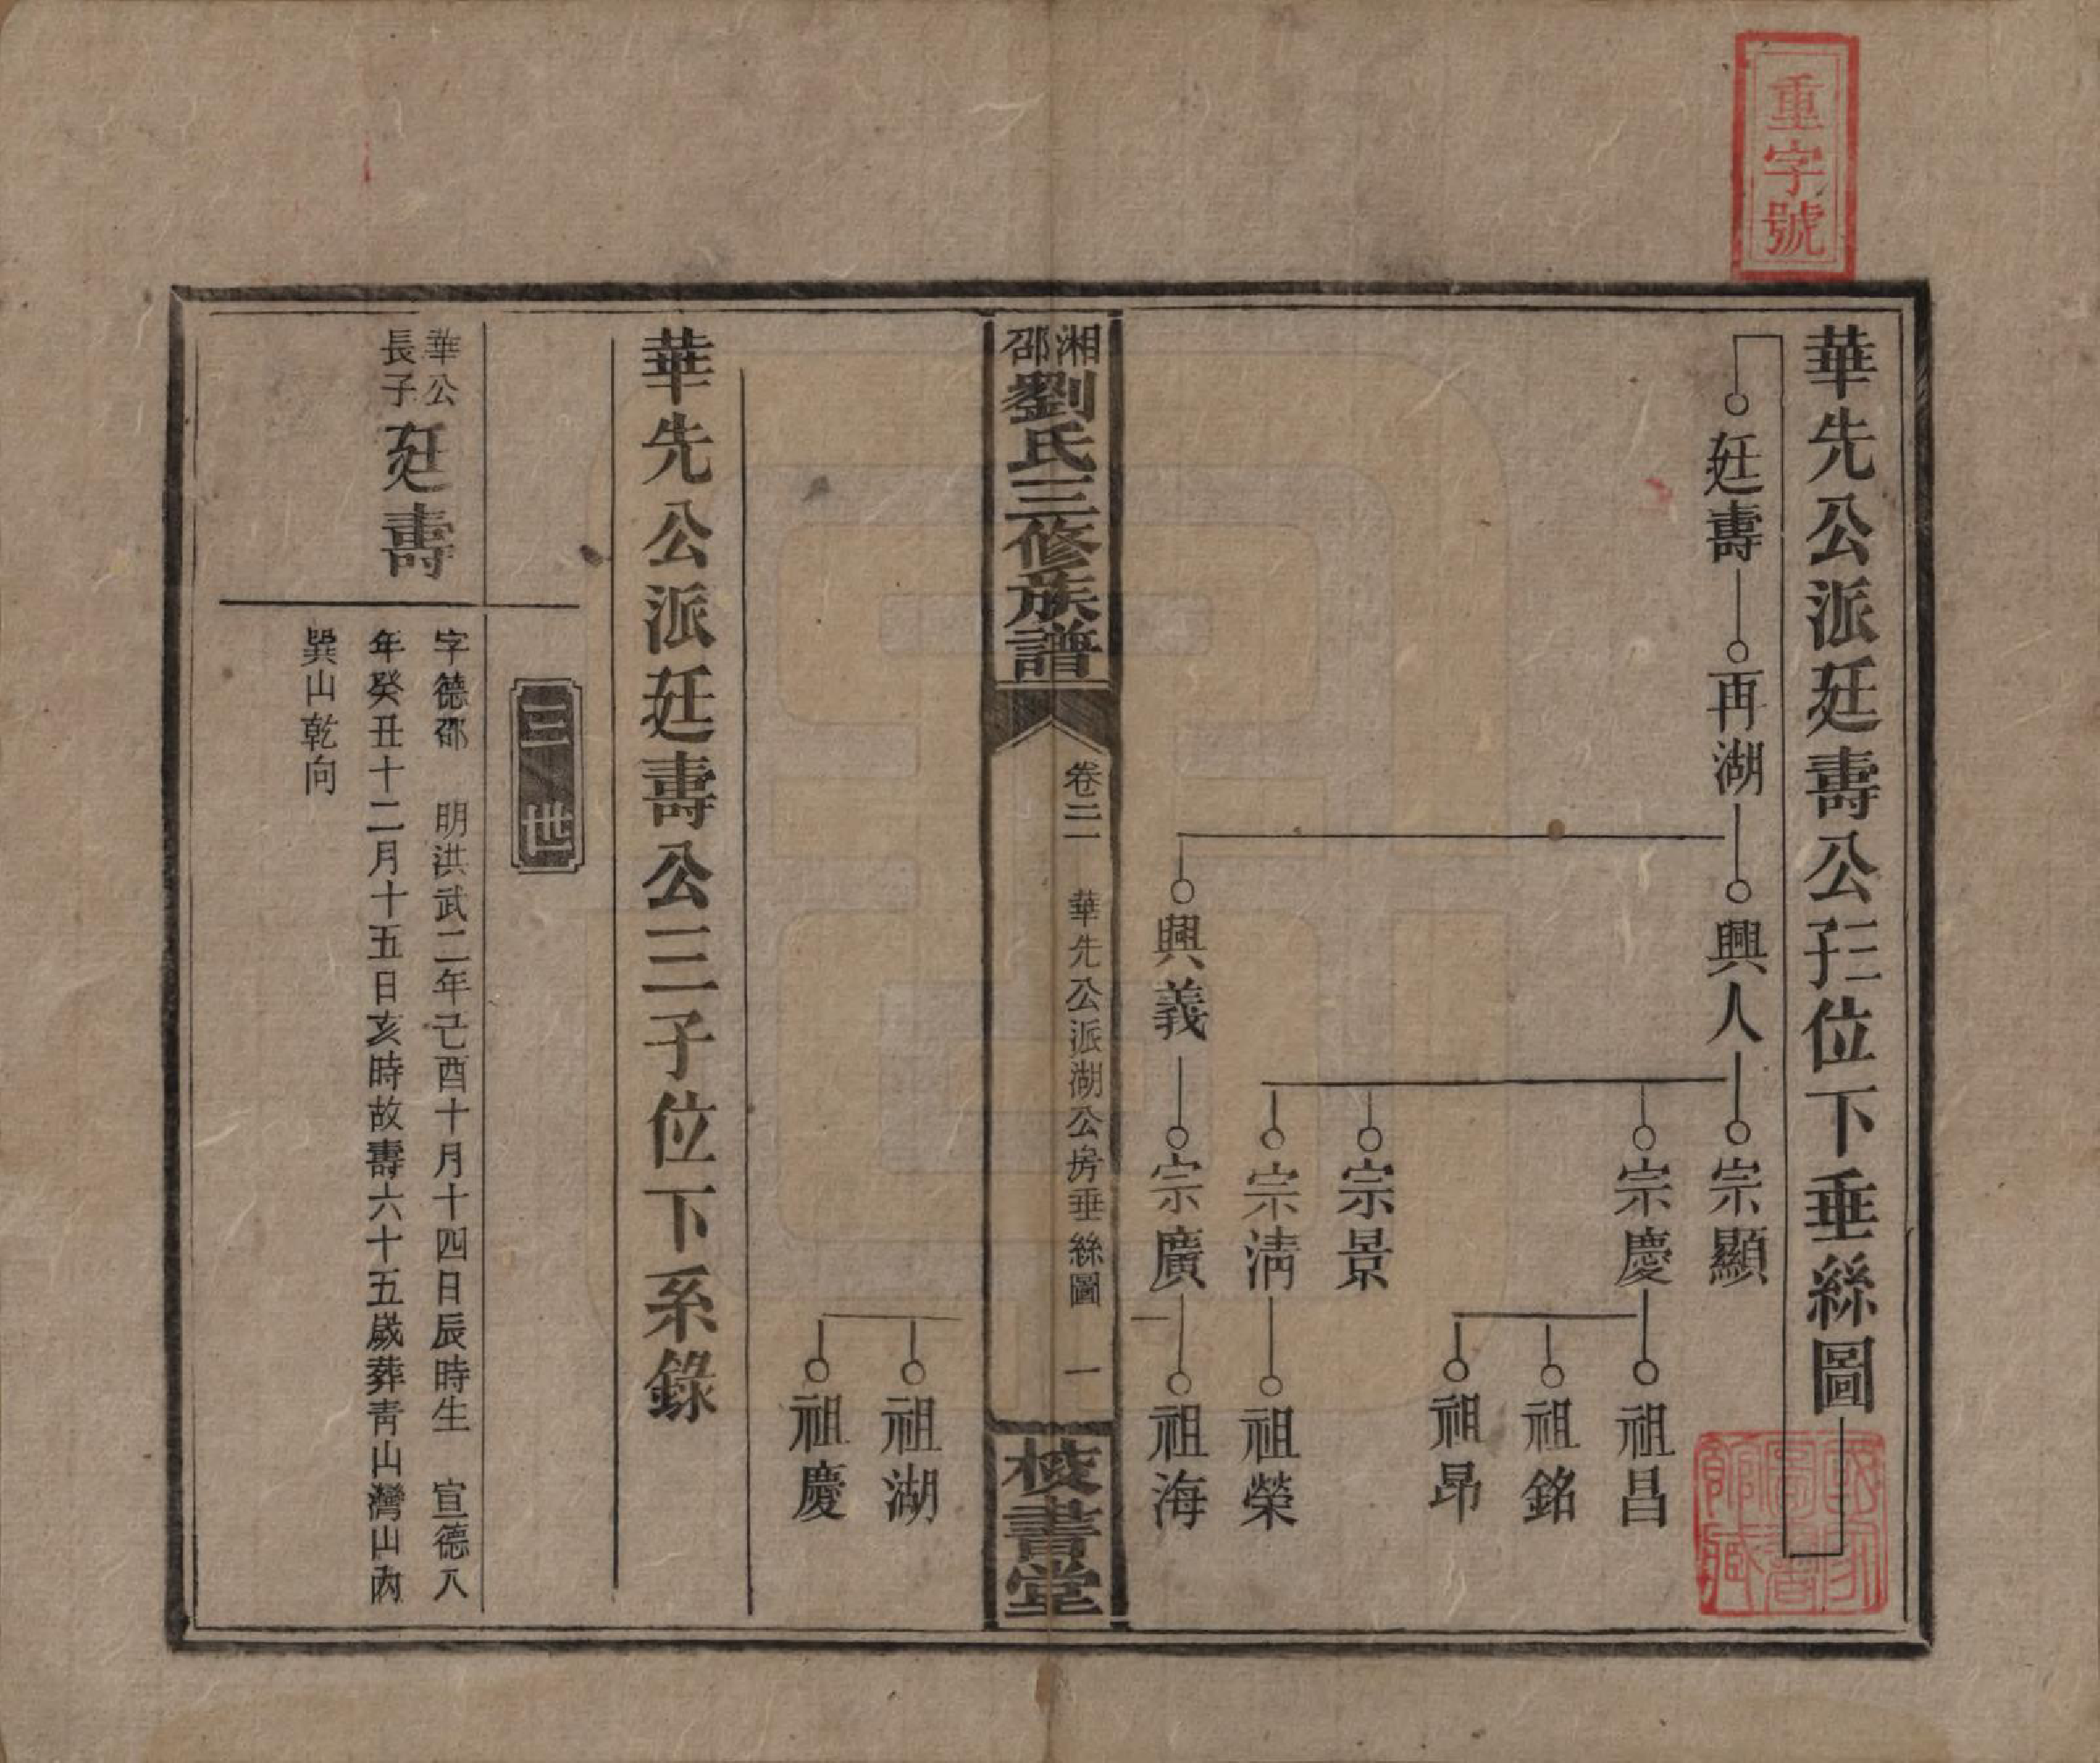 重字號
華先公派廷壽公三子位下垂絲圖
廷壽
再湖
興人
宗顯
宗慶
祖昌
祖銘
祖昂
宗景
宗淸
祖榮
興義
宗廣
祖海
湘邵劉氏三修族譜
卷二一
華先公派湖公房垂絲圖
一
校書堂
祖湖
祖慶
華先公派廷壽公三子位下系錄
三世
華公
長子
廷壽
字德邵 明洪武二年己酉十月十四日辰時生 宣德八
年癸丑十二月十五日亥時故壽六十五歲葬靑山灣山內
巽山乾向
國家圖書館藏